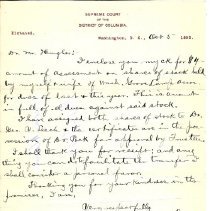 SUPREME COURT
OF THE
DISTRICT OF COLUMBIA.
Personal. Washington, D. C., Oct 5" 1892.
Dr. M.
I enclose you my ck for $4
amount of assessment on shares of stock held
by myself & wife of Wash.
for dues of last & this year. This is amount
in full of all dues against said stock.
I have assigned both shares of stock to Dr.
Geo. and the certificates are in the pos-
session of Dr. for approval by Trustees
I shall thank you for result, and any
thing you can do to facilitate the transfer I
shall consider a personal favor.
Thanking you for your kindness in the
premises, I am,
Very respectfully